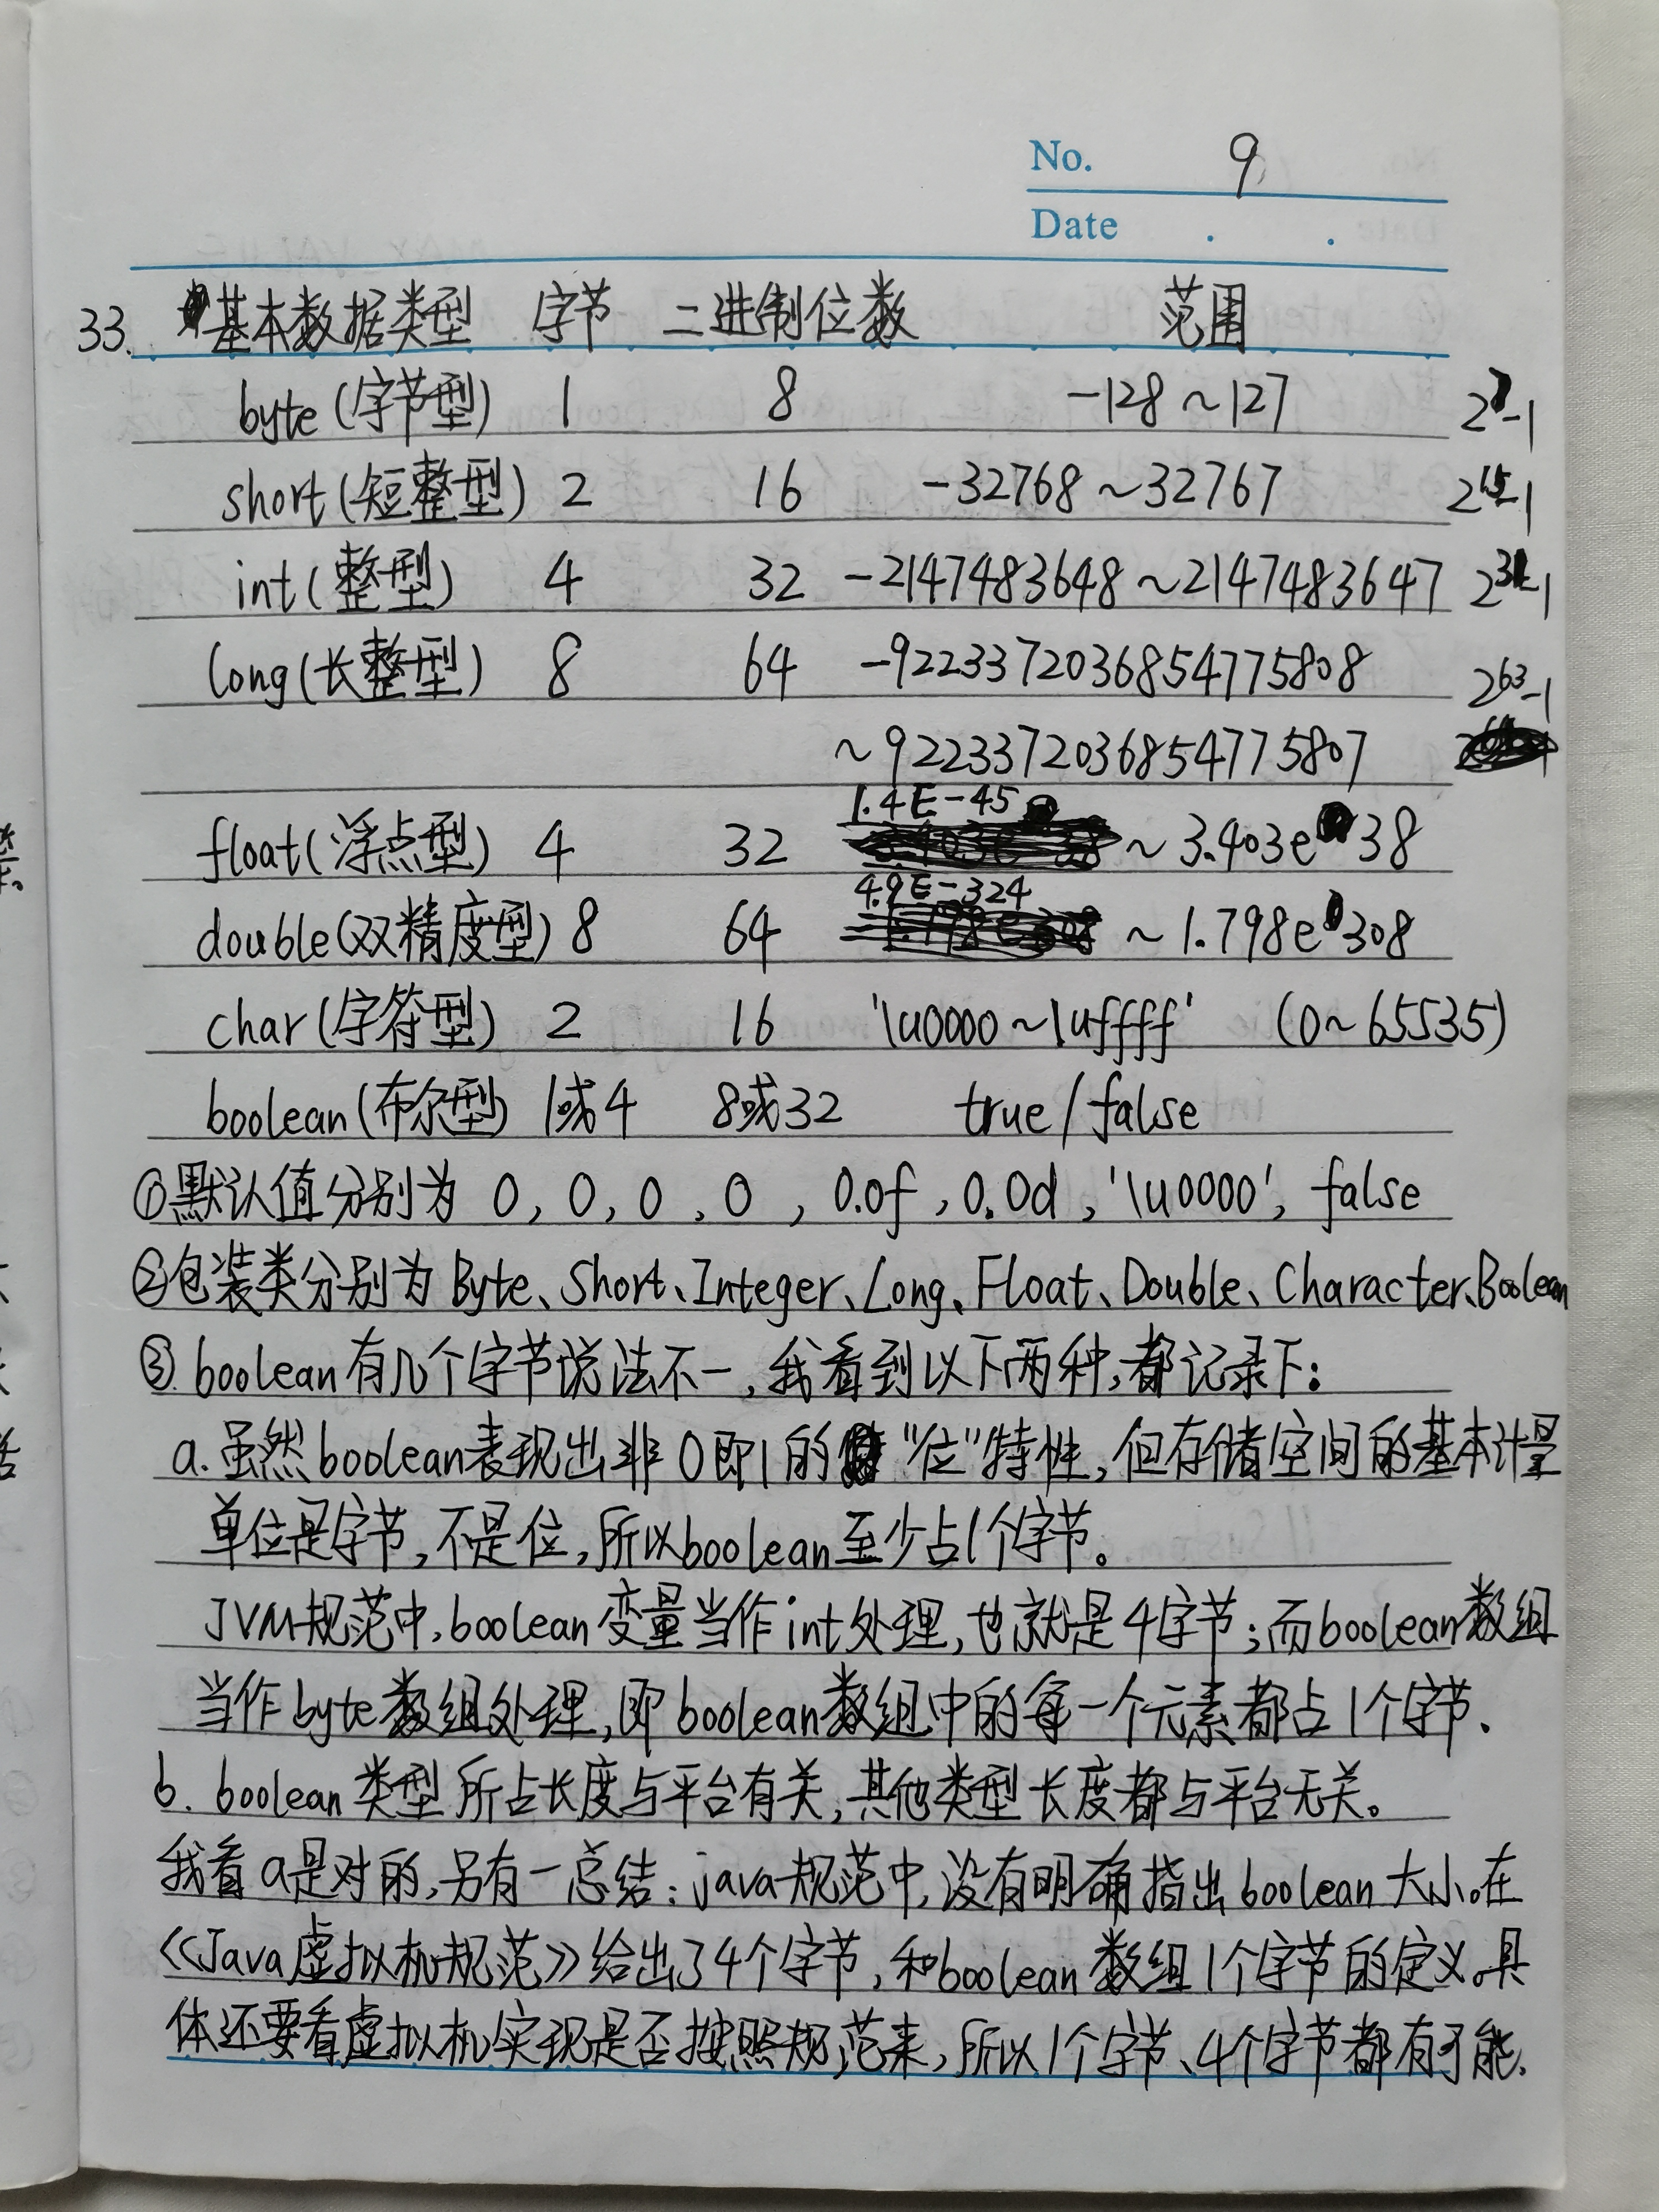 No. 9
Date . .
33. 基本数据类型 字节 二进制位数 范围
byte(字节型) 1 8 -128~127 2^7-1
short(短整型) 2 16 -32768~32767 2^15-1
int(整型) 4 32 -2147483648~2147483647 2^31-1
long(长整型) 8 64 -9223372036854775808 2^63-1
~9223372036854775807
1.4E-45
float(浮点型) 4 32 ~3.403e38
4.9E-324
double(双精度型) 8 64 ~1.798e308
char(字符型) 2 16 '\u0000~\uffff' (0~65535)
boolean(布尔型) 1或4 8或32 true/false
①默认值分别为 0, 0, 0, 0, 0.0f, 0.0d, '\u0000', false
②包装类分别为 Byte、Short、Integer、Long、Float、Double、Character、Boolean
③boolean有几个字节说法不一,我看到以下两种,都记录下:
a.虽然boolean表现出非0即1的"位"特性,但存储空间的基本计量
单位是字节,不是位,所以boolean至少占1个字节。
JVM规范中,boolean变量当作int处理,也就是4字节;而boolean数组
当作byte数组处理,即boolean数组中的每一个元素都占1个字节、
b. boolean类型所占长度与平台有关,其他类型长度都与平台无关。
我看a是对的,另有一总结:java规范中,没有明确指出boolean大小。在
《Java虚拟机规范》给出了4个字节,和boolean数组1个字节的定义。具
体还要看虚拟机实现是否按照规范来,所以1个字节、4个字节都有可能.